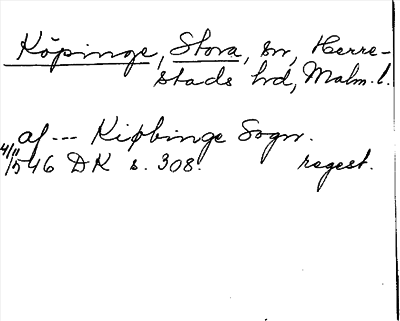 Köpinge, Stora, sn, Herre-
stads hrd, Malm. l.
af --- Kiøbinge Sogn.
4/11 1546 DK s. 308. regest.